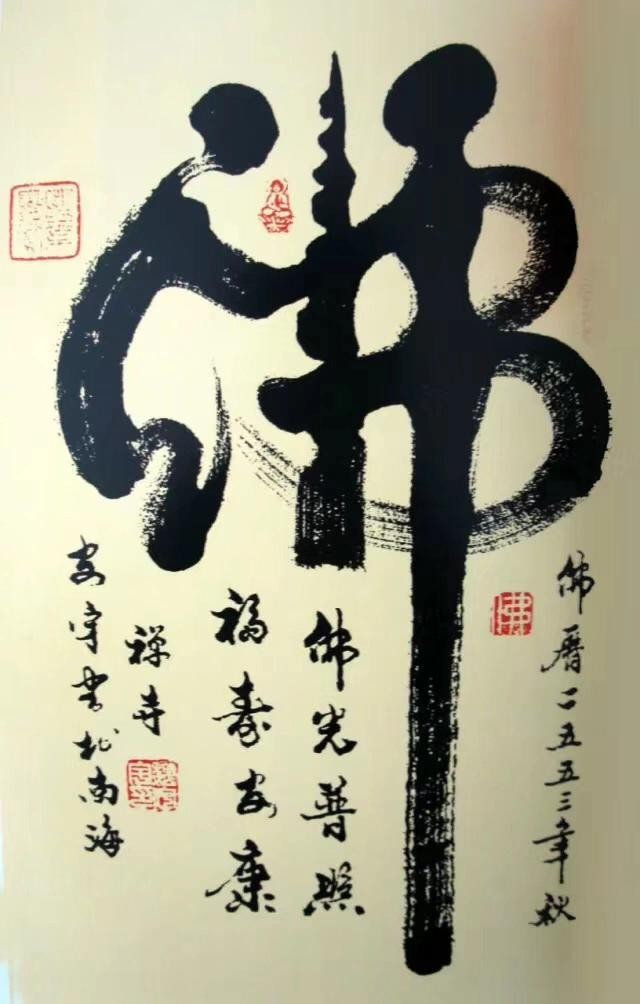 佛
佛曆二五五三年秋
佛光普照
福壽安康
安宇书於南海
禅寺
佛